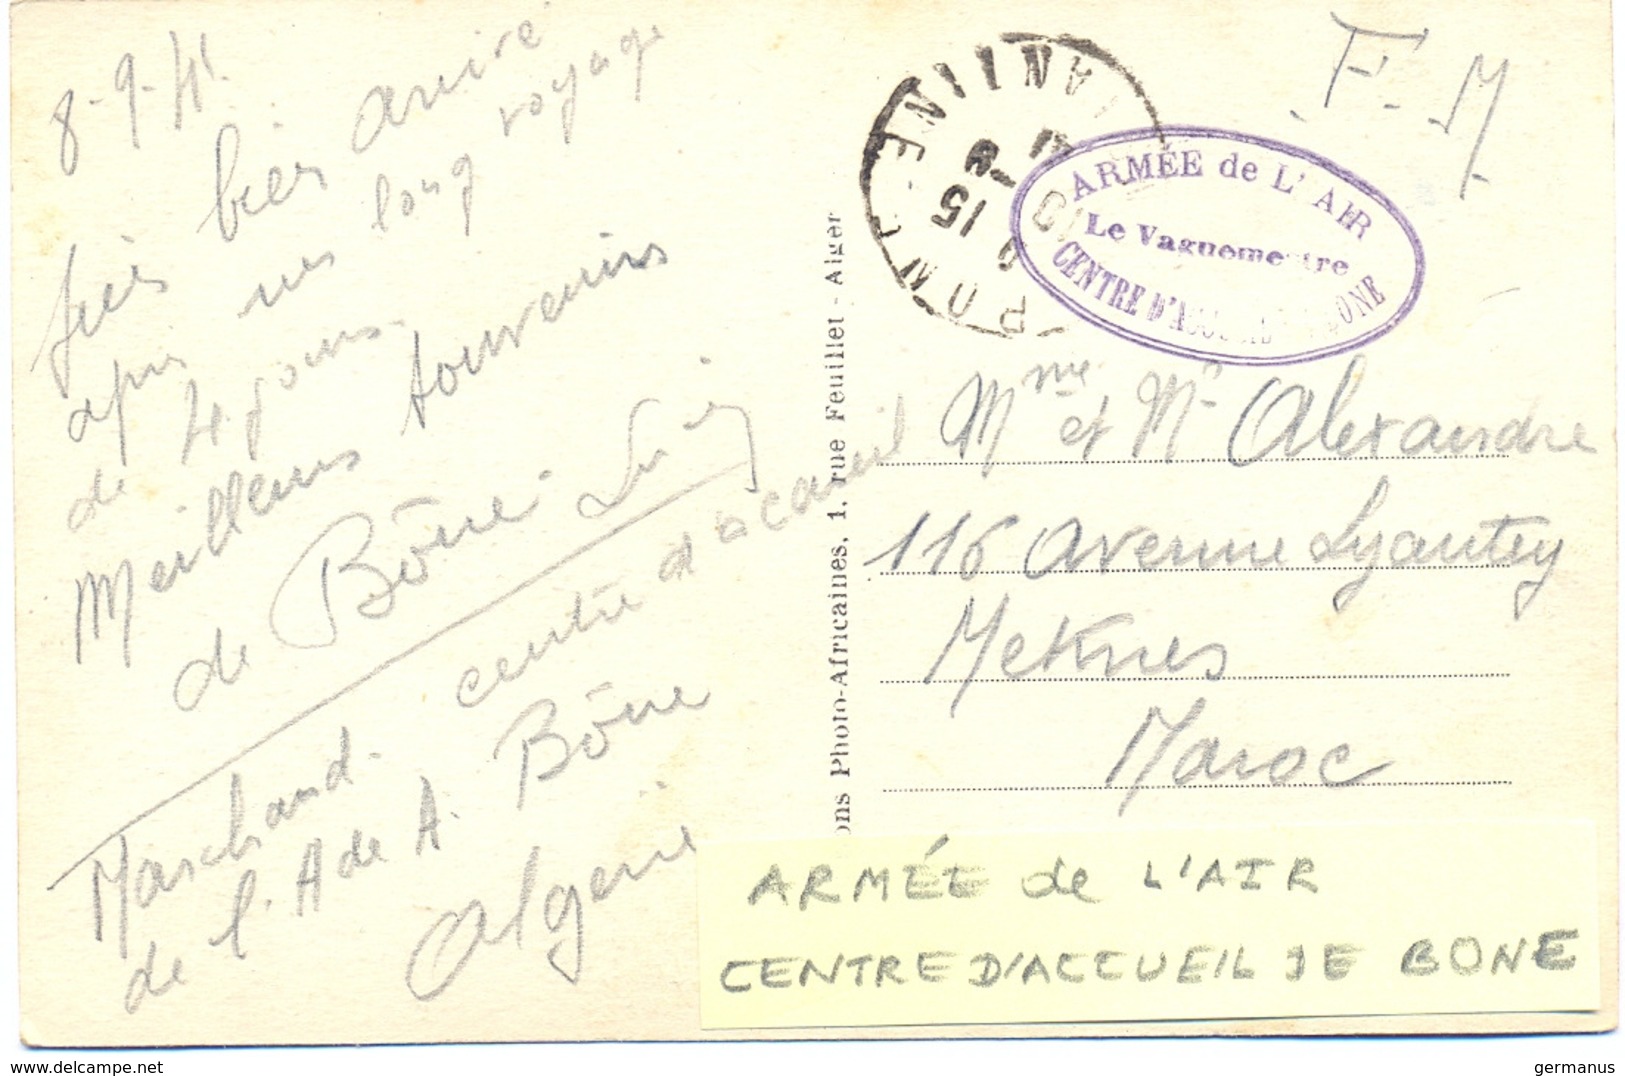 8-9-41.
suis bien arrivé
après un long voyage
de 4 jours.
Meilleurs souvenirs
de Bône.
Marchand. centre d'accueil
de l'A de A. Bône
Algérie
ons Photo-Africaines, 1, rue Feuillet - Alger
15
F. M
ARMÉE de L'AIR
Le Vaguemestre
CENTRE D'ACCUEIL DE BÔNE
Mme et Mr Alexandre
116 avenue Lyautey
Meknes
Maroc
ARMÉE de L'AIR
CENTRE D'ACCUEIL DE BONE
germanus